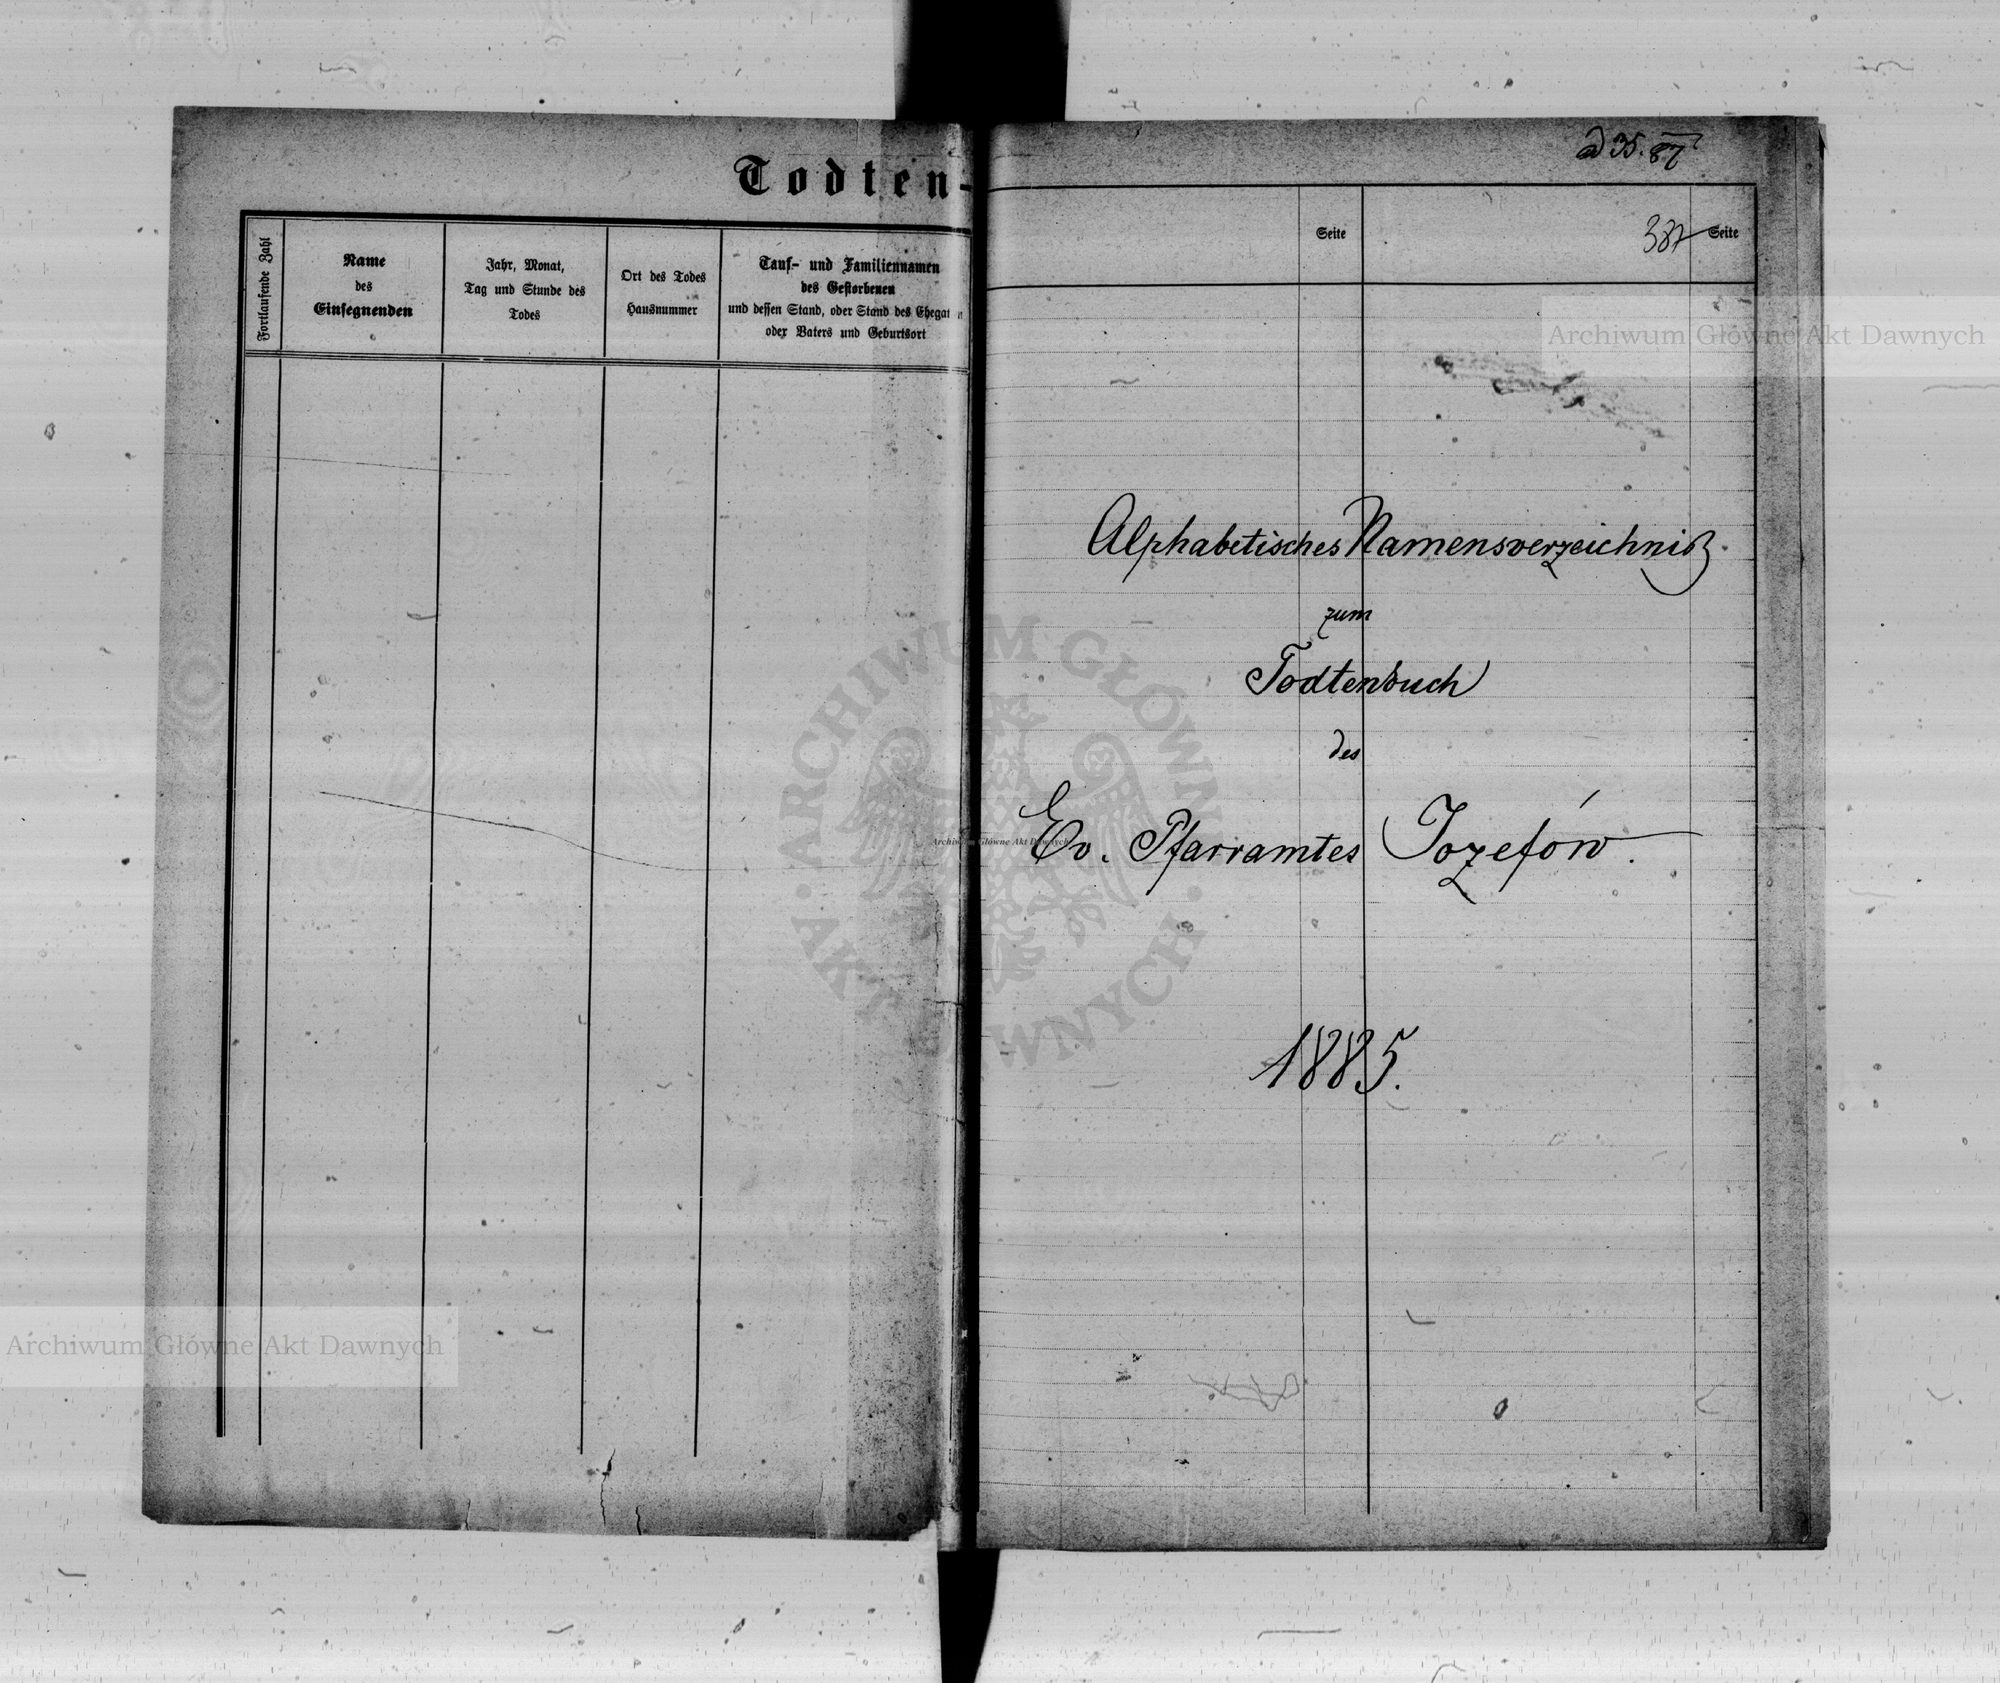 Todten-
Fortlaufende Zahl
Name
des
Einsegnenden
Jahr, Monat,
Tag und Stunde des
Todes
Ort des Todes
Hausnummer
Tauf- und Familiennamen
des Gestorbenen
und dessen Stand, oder Stand des Ehegat
oder Vaters und Geburtsort
ad 35.87
Seite
387 Seite
Alphabetisches Namensverzeichniß
zum
Todtenbuch
des
Ev. Pfarramtes Jozefów.
1885.
Archiwum Główne Akt Dawnych
ARCHIWUM GŁÓWNE · AKT DAWNYCH ·
Archiwum Główne Akt Dawnych
Archiwum Główne Akt Dawnych